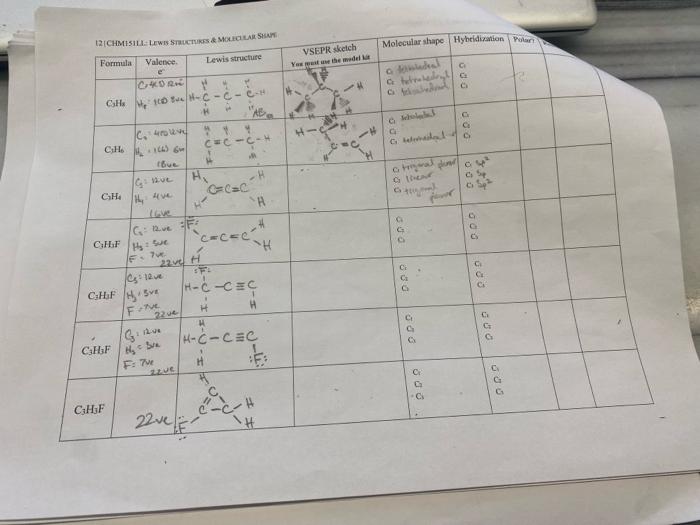 12|CHM151LL: LEWIS STRUCTURES & MOLECULAR SHAPE
Formula Valence. e⁻ Lewis structure VSEPR sketch You must use the model kit Molecular shape Hybridization Polar?
C₃H₈ H-C-C-C-H C₁ tetrahedral C₁
C₂ tetrahedral C₂
C₃ tetrahedral C₃
C₃H₆ 18ve C=C-C-H C₁ C₁
C₂ C₂
C₃ tetrahedral C₃
C₃H₄ C₃: 12ve C=C=C C₁ trigonal planar C₁ sp²
H₄: 4ve C₂ linear C₂ sp
16ve C₃ trigonal planar C₃ sp²
C₃H₃F C₃: 12ve :F: C=C=C H C₁ C₁
H₃: 3ve C₂ C₂
F: 7ve C₃ C₃
22ve H
C₃H₃F C₃: 12ve :F: C₁ C₁
H₃: 3ve H-C-C≡C C₂ C₂
F: 7ve H H C₃ C₃
22ve
C₃H₃F C₃: 12ve H C₁ C₁
H₃: 3ve H-C-C≡C C₂ C₂
F: 7ve H :F: C₃ C₃
22ve
C₃H₃F H C C₁ C₁
C-C-H C₂ C₂
22ve :F H C₃ C₃